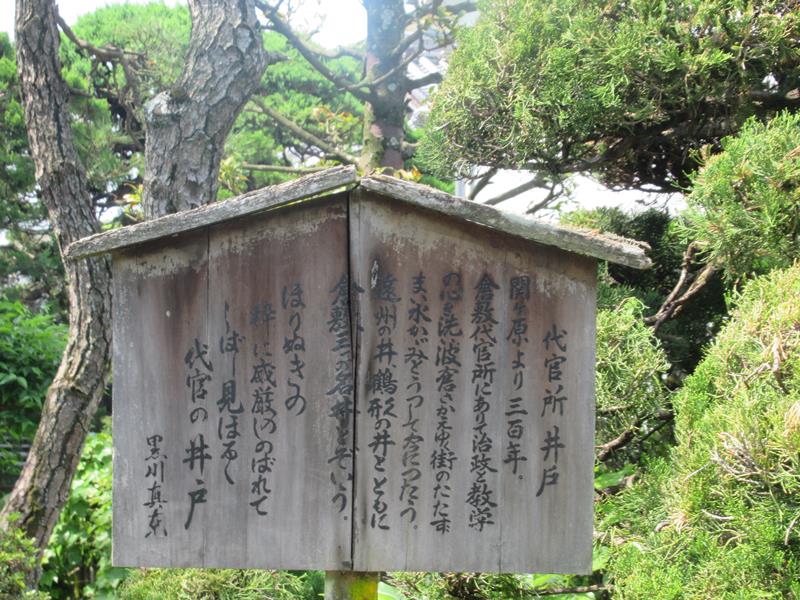 代官所井戸
関ヶ原より三百年。
倉敷代官所にありて治政と教学
の心を洗い波倉さかえゆく街のたたず
まい水かゞみとうつして今につたう。
遠州の井、鶴形の井とともに
倉敷三つの名井とぞいう。
ほりぬきの
粋に威厳のしのばれて
しばし見ほるゝ
代官の井戸
黒川真